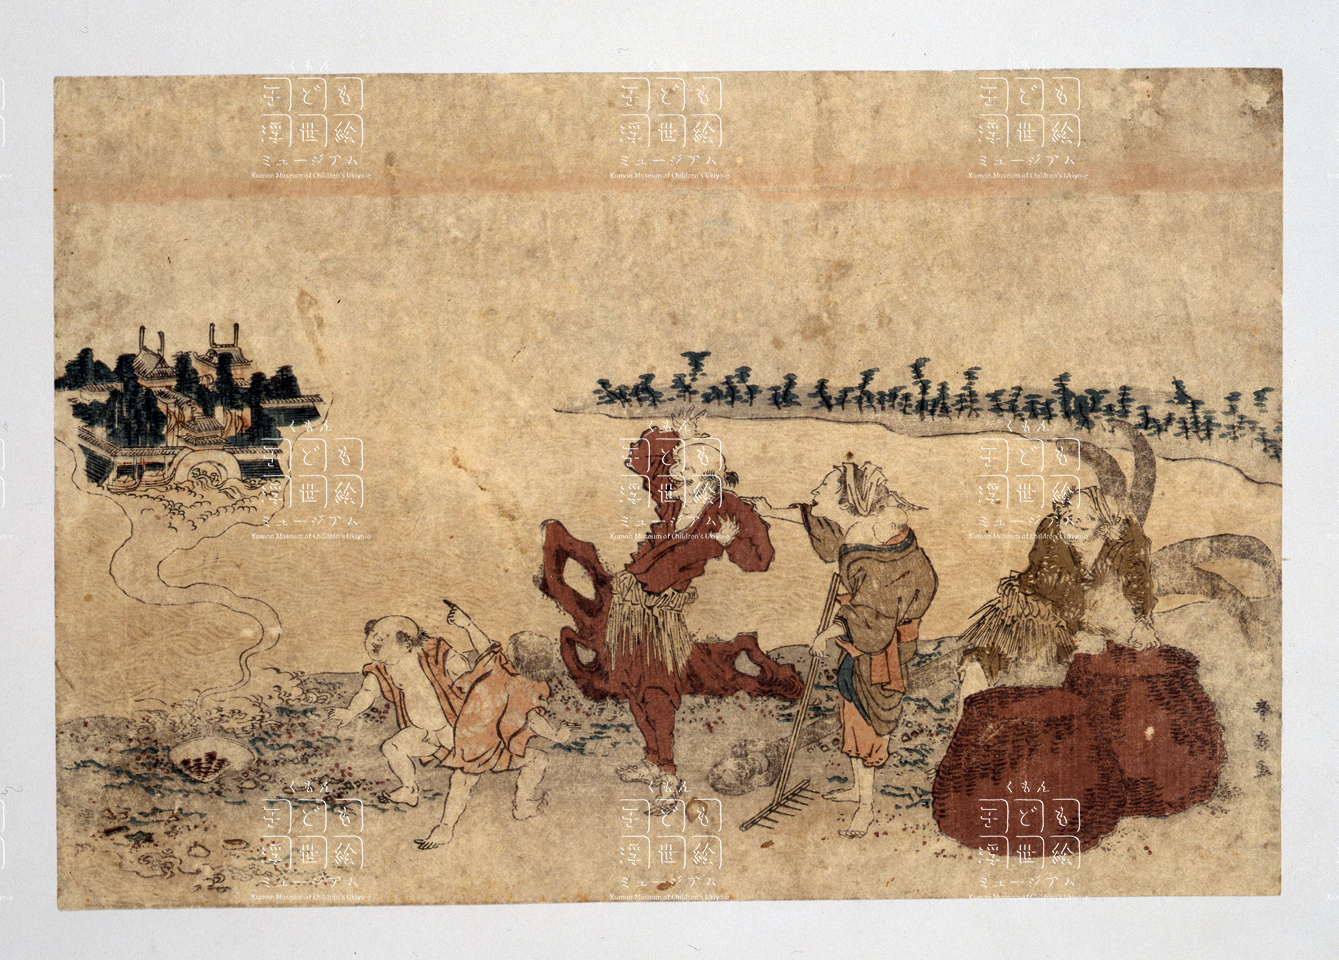 くもん
子ども
浮世絵
ミュージアム
Kumon Museum of Children's Ukiyo-e
くもん
子ども
浮世絵
ミュージアム
Kumon Museum of Children's Ukiyo-e
くもん
子ども
浮世絵
ミュージアム
Kumon Museum of Children's Ukiyo-e
くもん
子ども
浮世絵
ミュージアム
Kumon Museum of Children's Ukiyo-e
くもん
子ども
浮世絵
ミュージアム
Kumon Museum of Children's Ukiyo-e
くもん
子ども
浮世絵
ミュージアム
Kumon Museum of Children's Ukiyo-e
くもん
子ども
浮世絵
ミュージアム
Kumon Museum of Children's Ukiyo-e
くもん
子ども
浮世絵
ミュージアム
Kumon Museum of Children's Ukiyo-e
くもん
子ども
浮世絵
ミュージアム
Kumon Museum of Children's Ukiyo-e